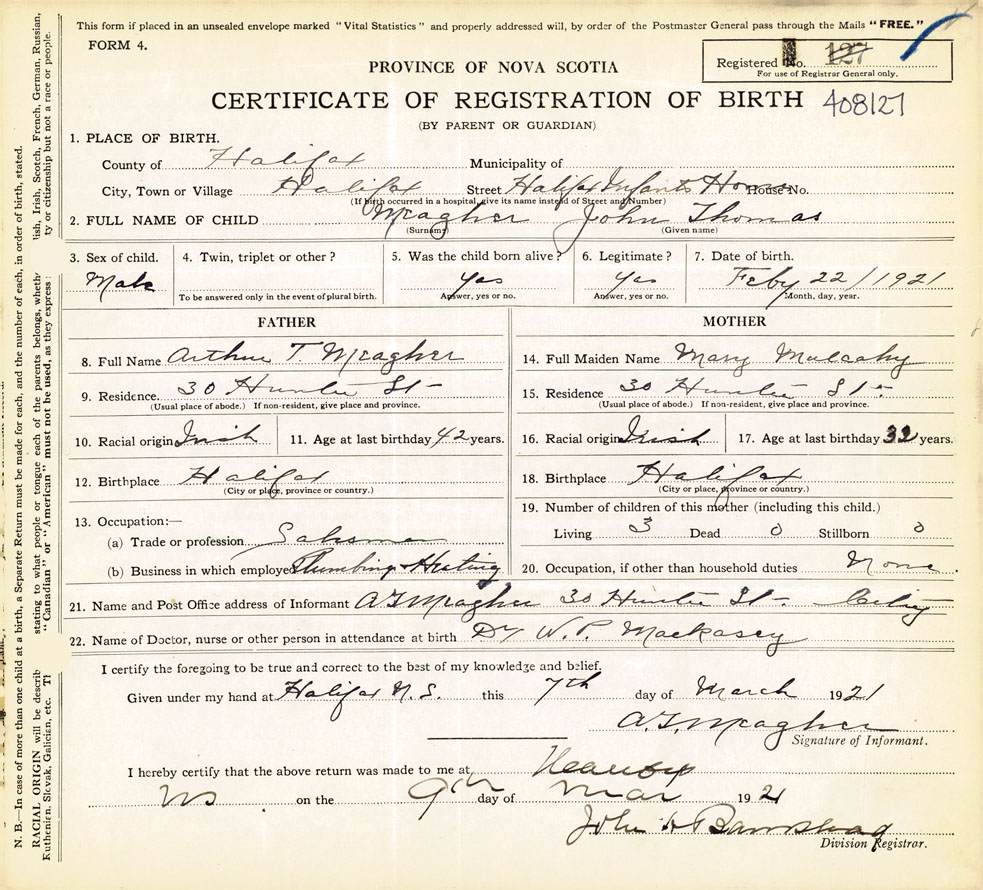 This form if placed in an unsealed envelope marked "Vital Statistics" and properly addressed will, by order of the Postmaster General pass through the Mails "FREE."
FORM 4.
Registered No. 127
For use of Registrar General only.
PROVINCE OF NOVA SCOTIA
CERTIFICATE OF REGISTRATION OF BIRTH 408127
(BY PARENT OR GUARDIAN)
1. PLACE OF BIRTH.
County of Halifax Municipality of
City, Town or Village Halifax Street Halifax Infants Home House No.
(If birth occurred in a hospital, give its name instead of Street and Number)
2. FULL NAME OF CHILD Meagher John Thomas
(Surname) (Given name)
3. Sex of child. 4. Twin, triplet or other? 5. Was the child born alive? 6. Legitimate? 7. Date of birth.
Male yes yes Feby 22/1921
To be answered only in the event of plural birth. Answer, yes or no. Answer, yes or no. Month, day, year.
FATHER
8. Full Name Arthur T. Meagher
9. Residence. 30 Hunter St-
(Usual place of abode.) If non-resident, give place and province.
10. Racial origin Irish 11. Age at last birthday 42 years.
12. Birthplace Halifax
(City or place, province or country.)
13. Occupation:—
(a) Trade or profession Salesman
(b) Business in which employed Plumbing & Heating
MOTHER
14. Full Maiden Name Mary Mulcahy
15. Residence 30 Hunter St-
(Usual place of abode.) If non-resident, give place and province.
16. Racial origin Irish 17. Age at last birthday years.
18. Birthplace Halifax
(City or place, province or country.)
19. Number of children of this mother (including this child.)
Living 3 Dead 0 Stillborn 0
20. Occupation, if other than household duties None.
21. Name and Post Office address of Informant A T Meagher 30 Hunter St- City
22. Name of Doctor, nurse or other person in attendance at birth Dr W. P. Mackasey
I certify the foregoing to be true and correct to the best of my knowledge and belief.
Given under my hand at Halifax N.S. this 7th day of March 1921
A.T. Meagher
Signature of Informant.
I hereby certify that the above return was made to me at
NS on the 9th day of Mar 1921
John
Division Registrar.
N. B.—In case of more than one child at a birth, a Separate Return must be made for each, and the number of each, in order of birth, stated.
RACIAL ORIGIN will be describ stating to what people or tongue each of the parents belongs, wheth lish, Irish, Scotch, French, German, Russian,
Ruthenian, Slovak, Galician, etc. Th "Canadian" or "American" must not be used, as they express ty or citizenship but not a race or people.